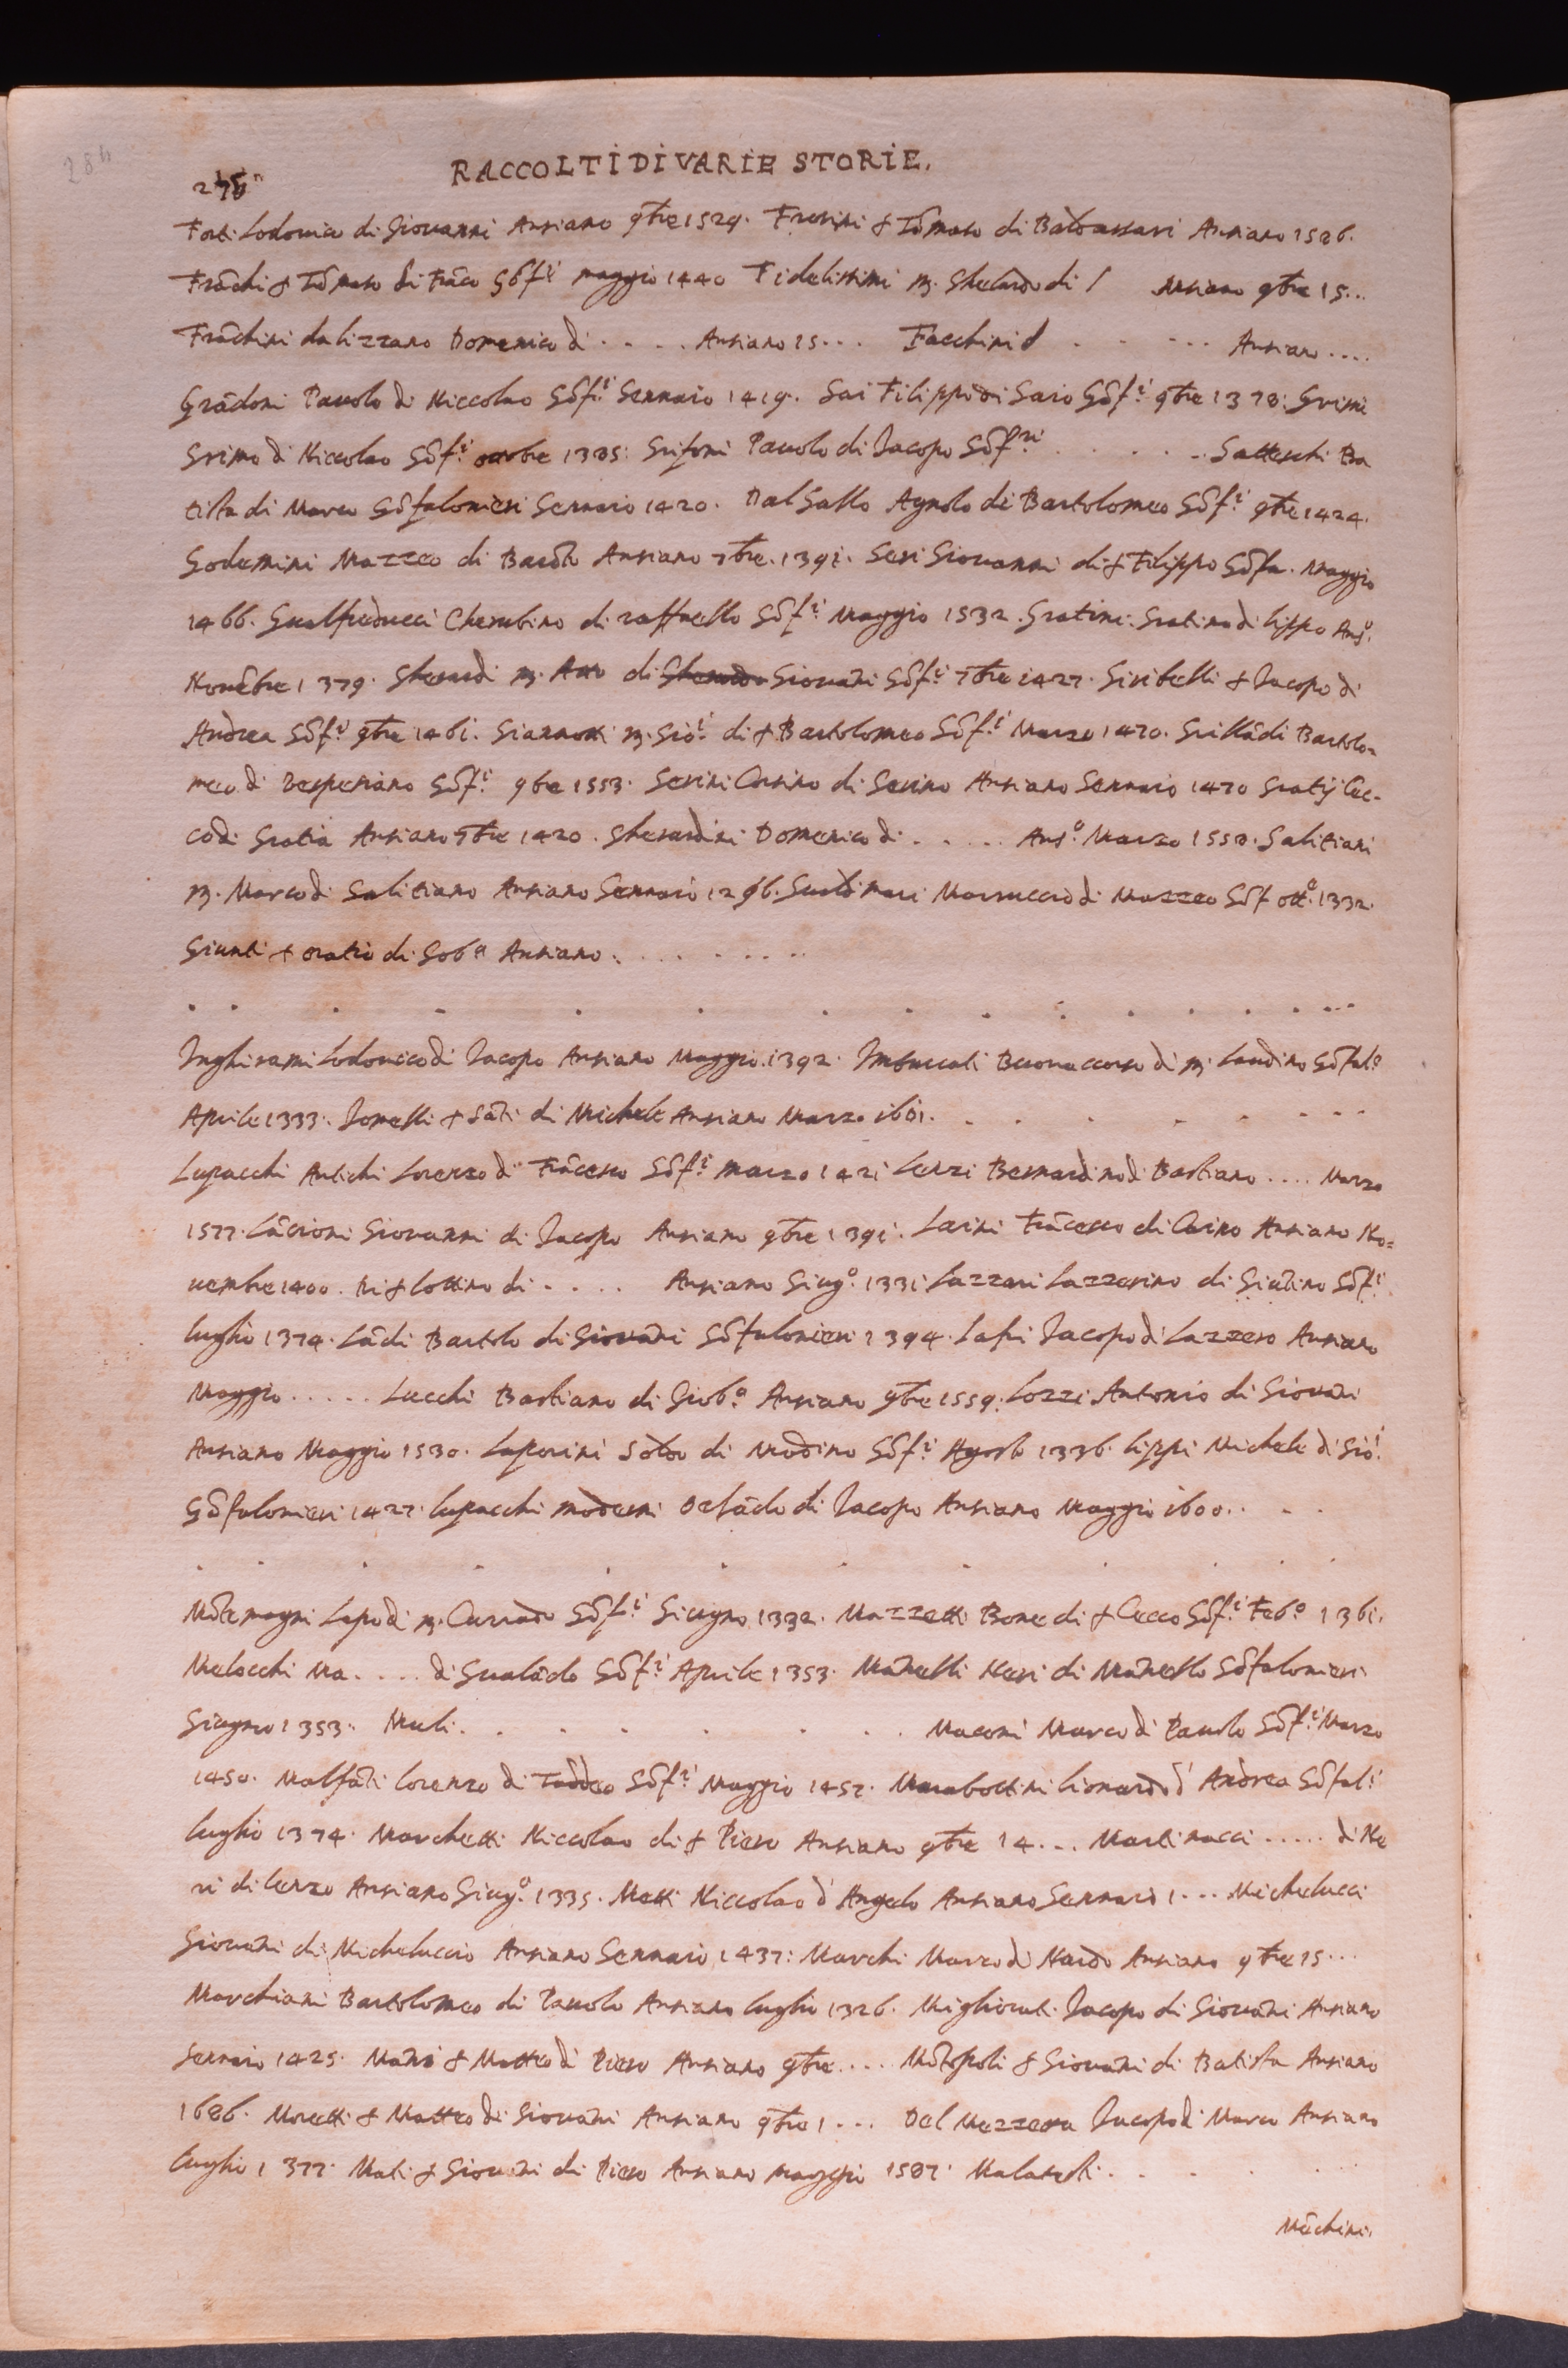 284
RACCOLTI DI VARIE STORIE.
Forti Lodovico di Giovanni Anziano 9bre 1529. Fresini & Tõmaso di Baldassari Anziano 1586.
Frãchi & Tõmaso di Frãco Gõf.ri maggio 1440 Fidelissimi M. Gherardo di / Anziano 9bre 15...
Frãchini da lizzano Domenico di . . . . Anziano 15... Facchini & . . . . . Anziano ....
Grãdoni Pauolo di Niccolao Gõf.ri Gennaio 1419. Gai Filippo di Gaio Gõf.ri 9bre 1378: Grimi
Grimo di Niccolao Gõf.ri octobre 1385: Grifoni Pauolo di Jacopo Gõf.ri . . . . . . Gatteschi Ba
tista di Marco Gõfalonieri Gennaio 1420. Dal Gallo Agnolo di Bartolomeo Gõf.ri 9bre 1424.
Godemini Mazzeo di Bardo Anziano 7bre. 1391. Geri Giovanni di & Filippo Gõfa. Maggio
1466. Gualfreducci Cherubino di raffaello Gõf.ri Maggio 1532. Gratini. Gratino di lippo Anz.o
Novẽbre 1379. Gherardi M. Atto di Giovãni Gõf.ri 7bre 1427. Giribelli & Jacopo di
Andrea Gõf.ri 9bre 1461. Giannotti M. Gio.i di & Bartolomeo Gõf.ri Marzo 1470. Grillãdi Bartolo=
meo di Vespesiano Gõf.ri 9bre 1553. Gerini Corsino di Gerino Anziano Gennaio 1470 Gratij Cec-
co di Gratia Anziano 7bre 1420. Gherardini Domenico di . . . . . Anz.o Marzo 1558. Galitiani
M. Marco di Galitiano Anziano Gennaio 1296. Gualdimari Marsuccio di Mazzeo Gõf ott.o 1332.
Giunti & oratio di Gob.a Anziano . . . . . . . . .
Inghirami Lodovico di Jacopo Anziano Maggio. 1392. Imbarcati Buonaccorso di M. Landino Gõfal.o
Aprile 1333. Jonelli & Sãti di Michele Anziano Marzo 1601. . . . . . . . .
Lupacchi Antichi Lorenzo di Frãcesco Gõf.ri marzo 1421 Lenzi Bernardino di Bastiano .... Marzo
1577. Lãcioni Giovanni di Jacopo Anziano 9bre 1391. Larini Frãcesco di Carino Anziano No=
uembre 1400. Di & Lottino di . . . . Anziano Giug.o 1331 Lazzari Lazzerino di Giũtino Gõf.ri
luglio 1374. Lãdi Bartolo di Giovãni Gõfalonieri 1394. Lafri Jacopo di Lazzero Anziano
Maggio . . . . . Lucchi Bastiano di Giob.a Anziano 9bre 1559. Lozzi Antonio di Giovãni
Anziano Maggio 1530. Laporini Soldo di Modino Gõf.ri Agosto 1336. lippi Michele di Gio.i
Gõfalonieri 1427. Lupacchi moderni Orlãdo di Jacopo Anziano Maggio 1600. . . .
Mõtemagni Lapo di M. Currado Gõf.ri Giugno 1332. Mazzetti Bone di & Cecco Gõf.ri Feb.o 1361.
Melocchi Ma . . . . di Gualãdo Gõf.ri Aprile 1353. Manelli Neri di Manello Gõfalonieri
Giugno 1353. Muli. . . . . . . . Maconi Marco di Pauolo Gõf.ri Marzo
1450. Malfãti Lorenzo di Taddeo Gõf.ri Maggio 1452. Marabottini Lionardo d' Andrea Gõfal.ri
luglio 1374. Marchetti Niccolao di & Piero Anziano 9bre 14... Martinacci . . . . . di Ne
ri di lenzo Anziano Giug.o 1335. Metti Niccolao d' Angelo Anziano Gennaio 1... Michelucci
Giovãni di Micheluccio Anziano Gennaio 1437: Marchi Marco di Nardo Anziano 9bre 15...
Marchiani Bartolomeo di Pauolo Anziano luglio 1326. Migliorati Jacopo di Giovãni Anziano
Gennaio 1425. Mãni & Matteo di Piero Anziano 9bre .... Mõtopoli & Giovãni di Batista Anziano
1686. Moretti & Matteo di Giovãni Anziano 9bre 1 ... Del Mazzera Jacopo di Marco Anziano
luglio 1377. Mati & Giovãni di Piero Anziano maggio 1587. Malaresti . . . . .
Mãchini.